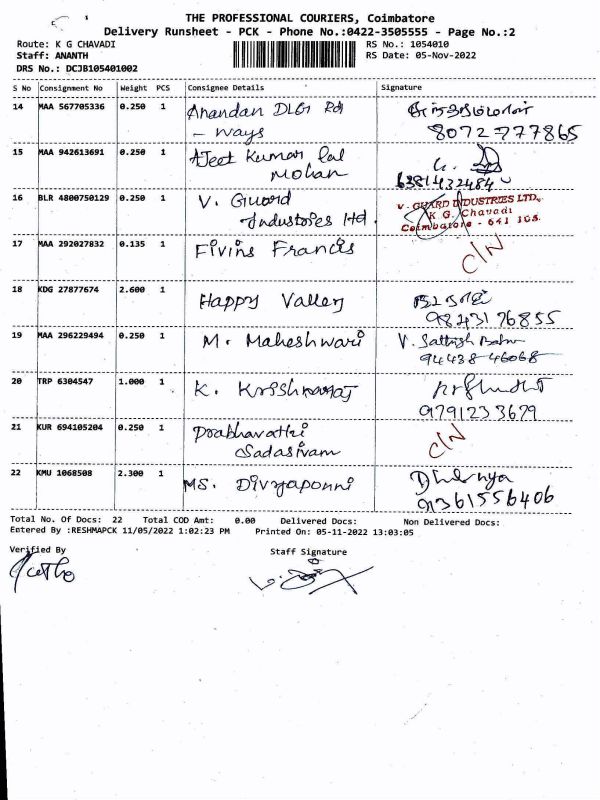 THE PROFESSIONAL COURIERS, Coimbatore
Delivery Runsheet - PCK - Phone No.:0422-3505555 - Page No.:2
Route: K G CHAVADI
RS No.: 1054010
Staff: ANANTH
RS Date: 05-Nov-2022
DRS No.: DCJB105401002
S No Consignment No Weight PCS Consignee Details Signature
14 MAA 567705336 0.250 1 Anandan DLG Rd
- ways
8072777865
15 MAA 942613691 0.250 1 AJeet Kumar Lal
Mohan
6381432484
16 BLR 4800750129 0.250 1 V. Guard
Industries ltd.
V. GUARD INDUSTRIES LTD.,
K G. Chavadi
Coimbatore - 641 105.
17 MAA 292027832 0.135 1 Fivins Francis C/N
18 KDG 27877674 2.600 1 Happy Valley
9843176855
19 MAA 296229494 0.250 1 M. Maheshwari V. Sathish Babu
94438-46068
20 TRP 6304547 1.000 1 K. Krishnaraj
9791233679
21 KUR 694105204 0.250 1 Prabhavathi
Sadasivam C/N
22 KMU 1068508 2.300 1 MS. Divyaponni
9361556406
Total No. Of Docs: 22 Total COD Amt: 0.00 Delivered Docs: Non Delivered Docs:
Entered By :RESHMAPCK 11/05/2022 1:02:23 PM Printed On: 05-11-2022 13:03:05
Verified By Staff Signature